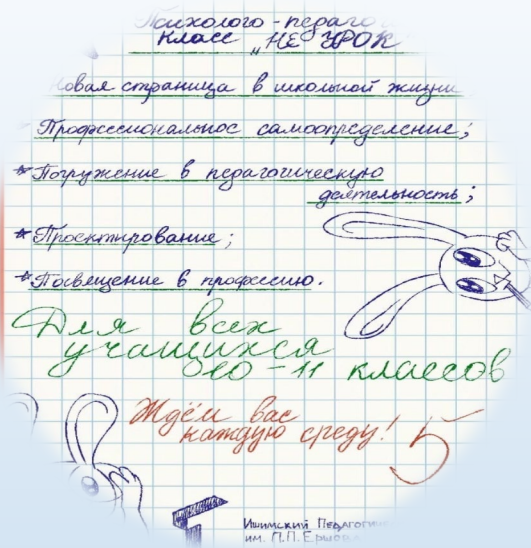 Психолого - педаго
класс „НЕ УРОК
овая страница в школьной жизни
Профессиональное самоопределение;
* Погружение в педагогическую
деятельность;
* Проектирование;
* Посвещение в профессию.
Для всех
учащихся
10 - 11 классов
Ждём вас
каждую среду! 5
Ишимский Педагогиче
им. П.П. Ершова